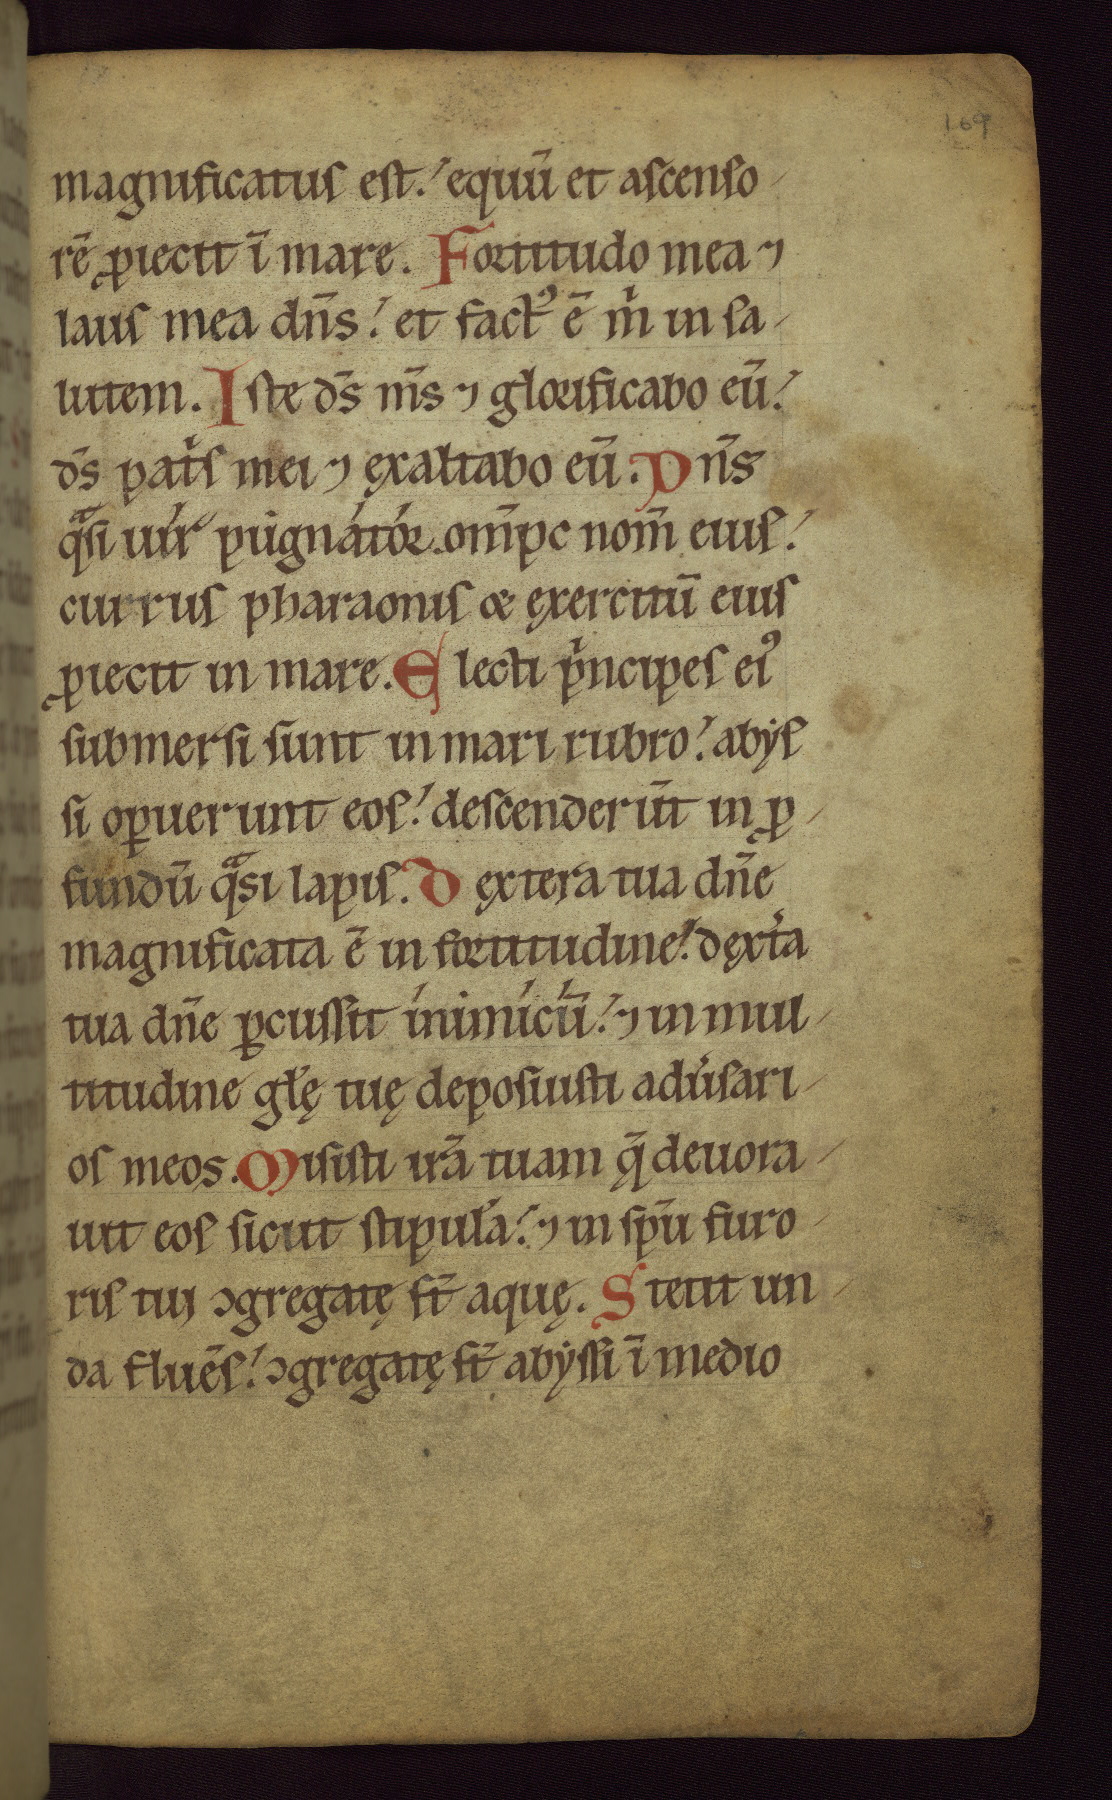 169
magnificatus est. equū et ascenso
rē ꝓiecit ī mare. Fortitudo mea ⁊
laus mea dn̄s. et factꝰ ē m̍ in sa
lutem. Iste ds̄ ms̄ ⁊ glorificabo eū.
ds̄ pat̍s mei ⁊ ęxaltabo eū. Dn̄s
qͣsi uír púgnátór. om̄pc nom̄ eius.
currus pharaonis & ęxercitū eius
ꝓiecit in mare. Electi p̍ncipes eiꝰ
submersi sunt in mari rubro. abẏs
si oꝑuerunt eos. descenderūt in ꝓ
fundū qͣsi lapis. Dęxtera tua dn̄e
magnificata ē in fortitudine. dęxt̍a
tua dn̄e ꝑcussit ínimícū. ⁊ in mul
titudine gl̄ę tuę deposuisti adu̍sari
os meos. Misisti irā tuam q̄ deuora
uit eos sicut stipulā. ⁊ in sp̄u furo
ris tui ɔgregatę st̄ aquę. Stetit un
da fluēs. ɔgregatę st̄ abẏssi ī medio